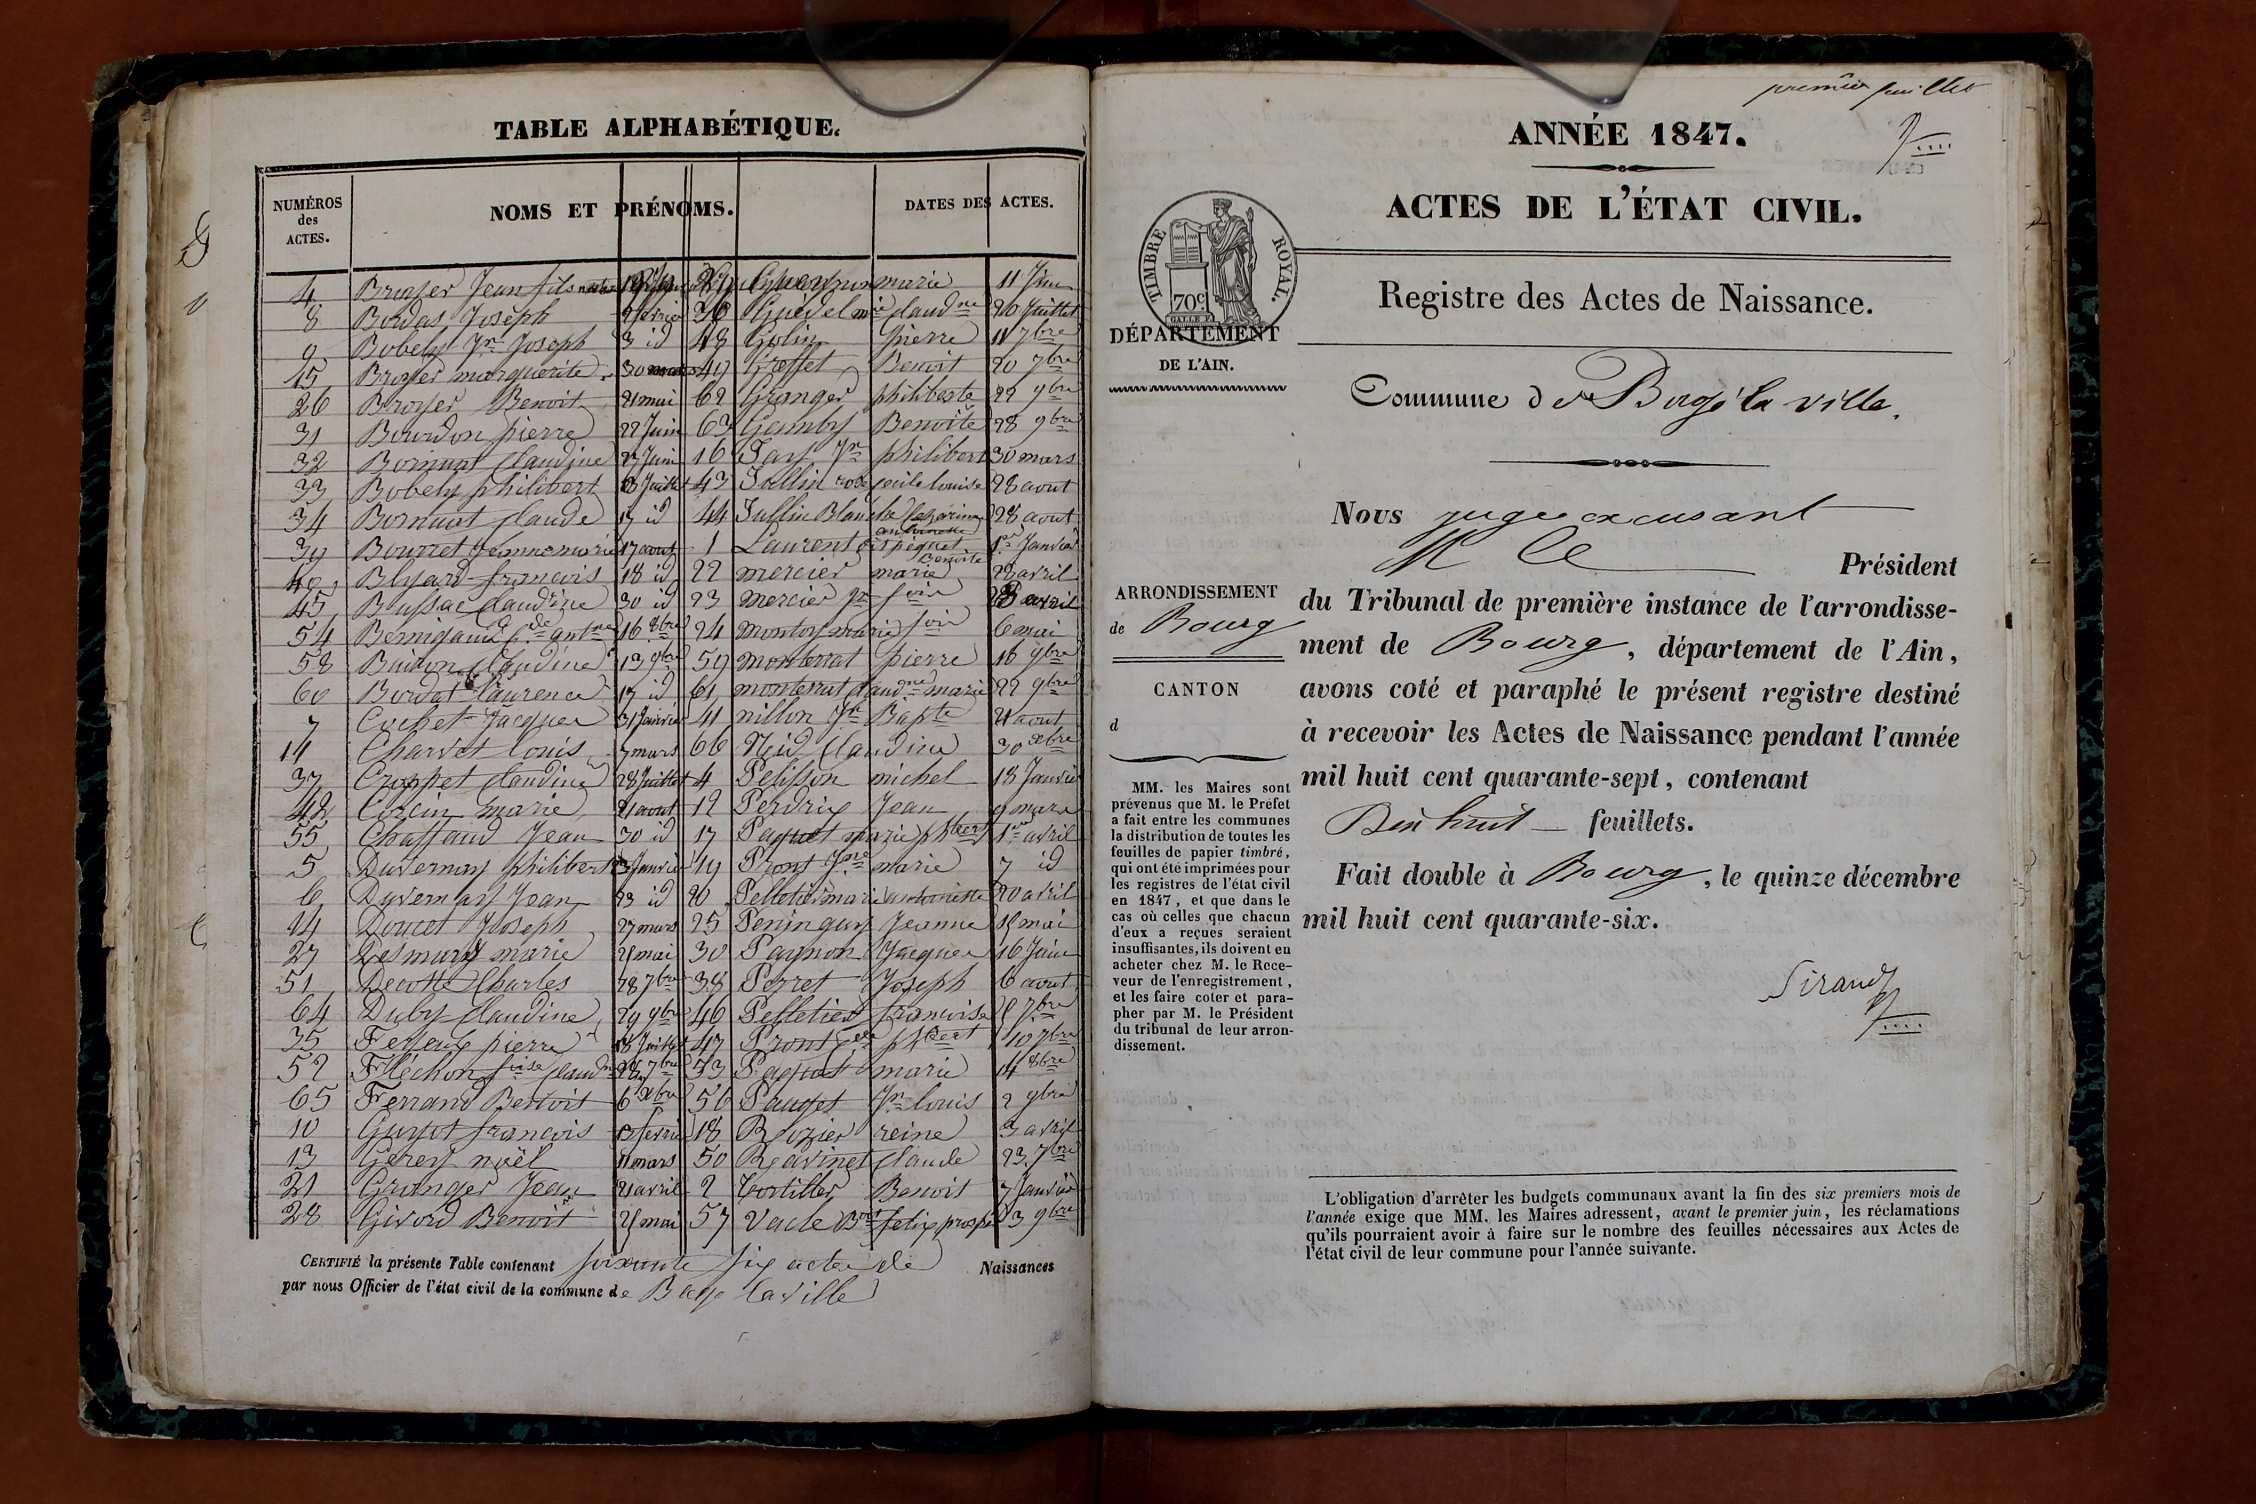 TABLE ALPHABÉTIQUE.
NUMÉROS des ACTES.
NOMS ET PRÉNOMS.
DATES DES ACTES.
4 Broyer Jean fils marie 11 Juin
8 Bordas Joseph 9 février 36 Guédel mie claudne 20 Juillet
9 Bobely Jn Joseph 3 id 48 Golin pierre 11 7bre
15 Broyer marguerite 30 mars 49 Greffet Benoit 20 7bre
26 Broyer Benoit 21 mai 62 Granger philiberte 22 9bre
31 Bourdon pierre 22 Juin 63 Gamby Benoîte 28 9bre
32 Bornuat Claudine 27 Juin 16 Jay Jn philibert 30 mars
33 Bobely philibert Juillet 43 Jullin rose cecile louise 28 aout
34 Bornuat Claude 17 id 44 Jullin Blanche antoinette 28 aout
39 Bourret Jeanne marie 17 aout 1 Laurent dit pequet Benoite 1er Janvier
40 Blyard francois 18 id 22 mercier marie 22 avril
45 Boussac Claudine 30 id 23 mercier Jn foix avril
54 Bernigaud antne 16 8bre 24 montoy marie foix 6 mai
58 Buidon Claudine 13 9bre 59 monterrat pierre 16 9bre
60 Bordat laurence 17 id 61 monterrat claudne marie 22 9bre
7 Cochet Jacques 31 Janvier 41 nillon Jn Bapte 21 aout
11 Charvet louis 7 mars 66 Neid Claudine 30 xbre
37 Croppet claudine 28 Juillet 4 Pelisson michel 18 Janvier
42 Corcin marie 21 aout 12 Perdrix Jean 9 mars
55 Chaffaud Jean 30 id 17 Paquet marie phbert 1er avril
5 Duvernay philibert 23 Janvier 19 Pront Jne marie 7 id
6 Duvernay Jean 23 id 20 Pelletier marie antoinette 20 avril
14 Doucet Joseph 27 mars 25 Peninguy Jeanne 15 mai
27 Desmurs marie 21 mai 30 Pagnon Jacques 16 Juin
51 Decotte Charles 28 7bre 38 Perret Joseph 6 aout
64 Duby Claudine 29 9bre 46 Pelletier francoise 7bre
35 Feyeux pierre 18 Juillet 47 Pront phbert 10 7bre
52 Fléchon foise claudne 28 7bre 53 Paquet marie 14 8bre
65 Ferrand Benoit 6 xbre 56 Pauget Jn louis 2 9bre
10 Guyot francois 13 fevrier 18 Rozier reine 3 avril
13 Gerey noël 11 mars 50 Ravinet Claude 23 7bre
21 Granger Jean 21 avril 2 Tortiller Benoit 7 Janvier
28 Givord Benoit 25 mai 57 Vacle Bort felix prosper 3 9bre
CERTIFIÉ la présente Table contenant soixante six actes de Naissances
par nous Officier de l'état civil de la commune de Bage la ville
premier feuillet
ANNÉE 1847.
ACTES DE L'ÉTAT CIVIL.
TIMBRE ROYAL.
70c
DÉPARTEMENT
DE L'AIN.
Registre des Actes de Naissance.
Commune de Bagé la ville.
ARRONDISSEMENT
de Bourg
CANTON
d
MM. les Maires sont
prévenus que M. le Préfet
a fait entre les communes
la distribution de toutes les
feuilles de papier timbré,
qui ont été imprimées pour
les registres de l'état civil
en 1847, et que dans le
cas où celles que chacun
d'eux a reçues seraient
insuffisantes, ils doivent en
acheter chez M. le Rece-
veur de l'enregistrement,
et les faire coter et para-
pher par M. le Président
du tribunal de leur arron-
dissement.
Nous juge excusant
M le Président
du Tribunal de première instance de l'arrondisse-
ment de Bourg, département de l'Ain,
avons coté et paraphé le présent registre destiné
à recevoir les Actes de Naissance pendant l'année
mil huit cent quarante-sept, contenant
Dix huit feuillets.
Fait double à Bourg, le quinze décembre
mil huit cent quarante-six.
Sirand
L'obligation d'arrêter les budgets communaux avant la fin des six premiers mois de
l'année exige que MM. les Maires adressent, avant le premier juin, les réclamations
qu'ils pourraient avoir à faire sur le nombre des feuilles nécessaires aux Actes de
l'état civil de leur commune pour l'année suivante.